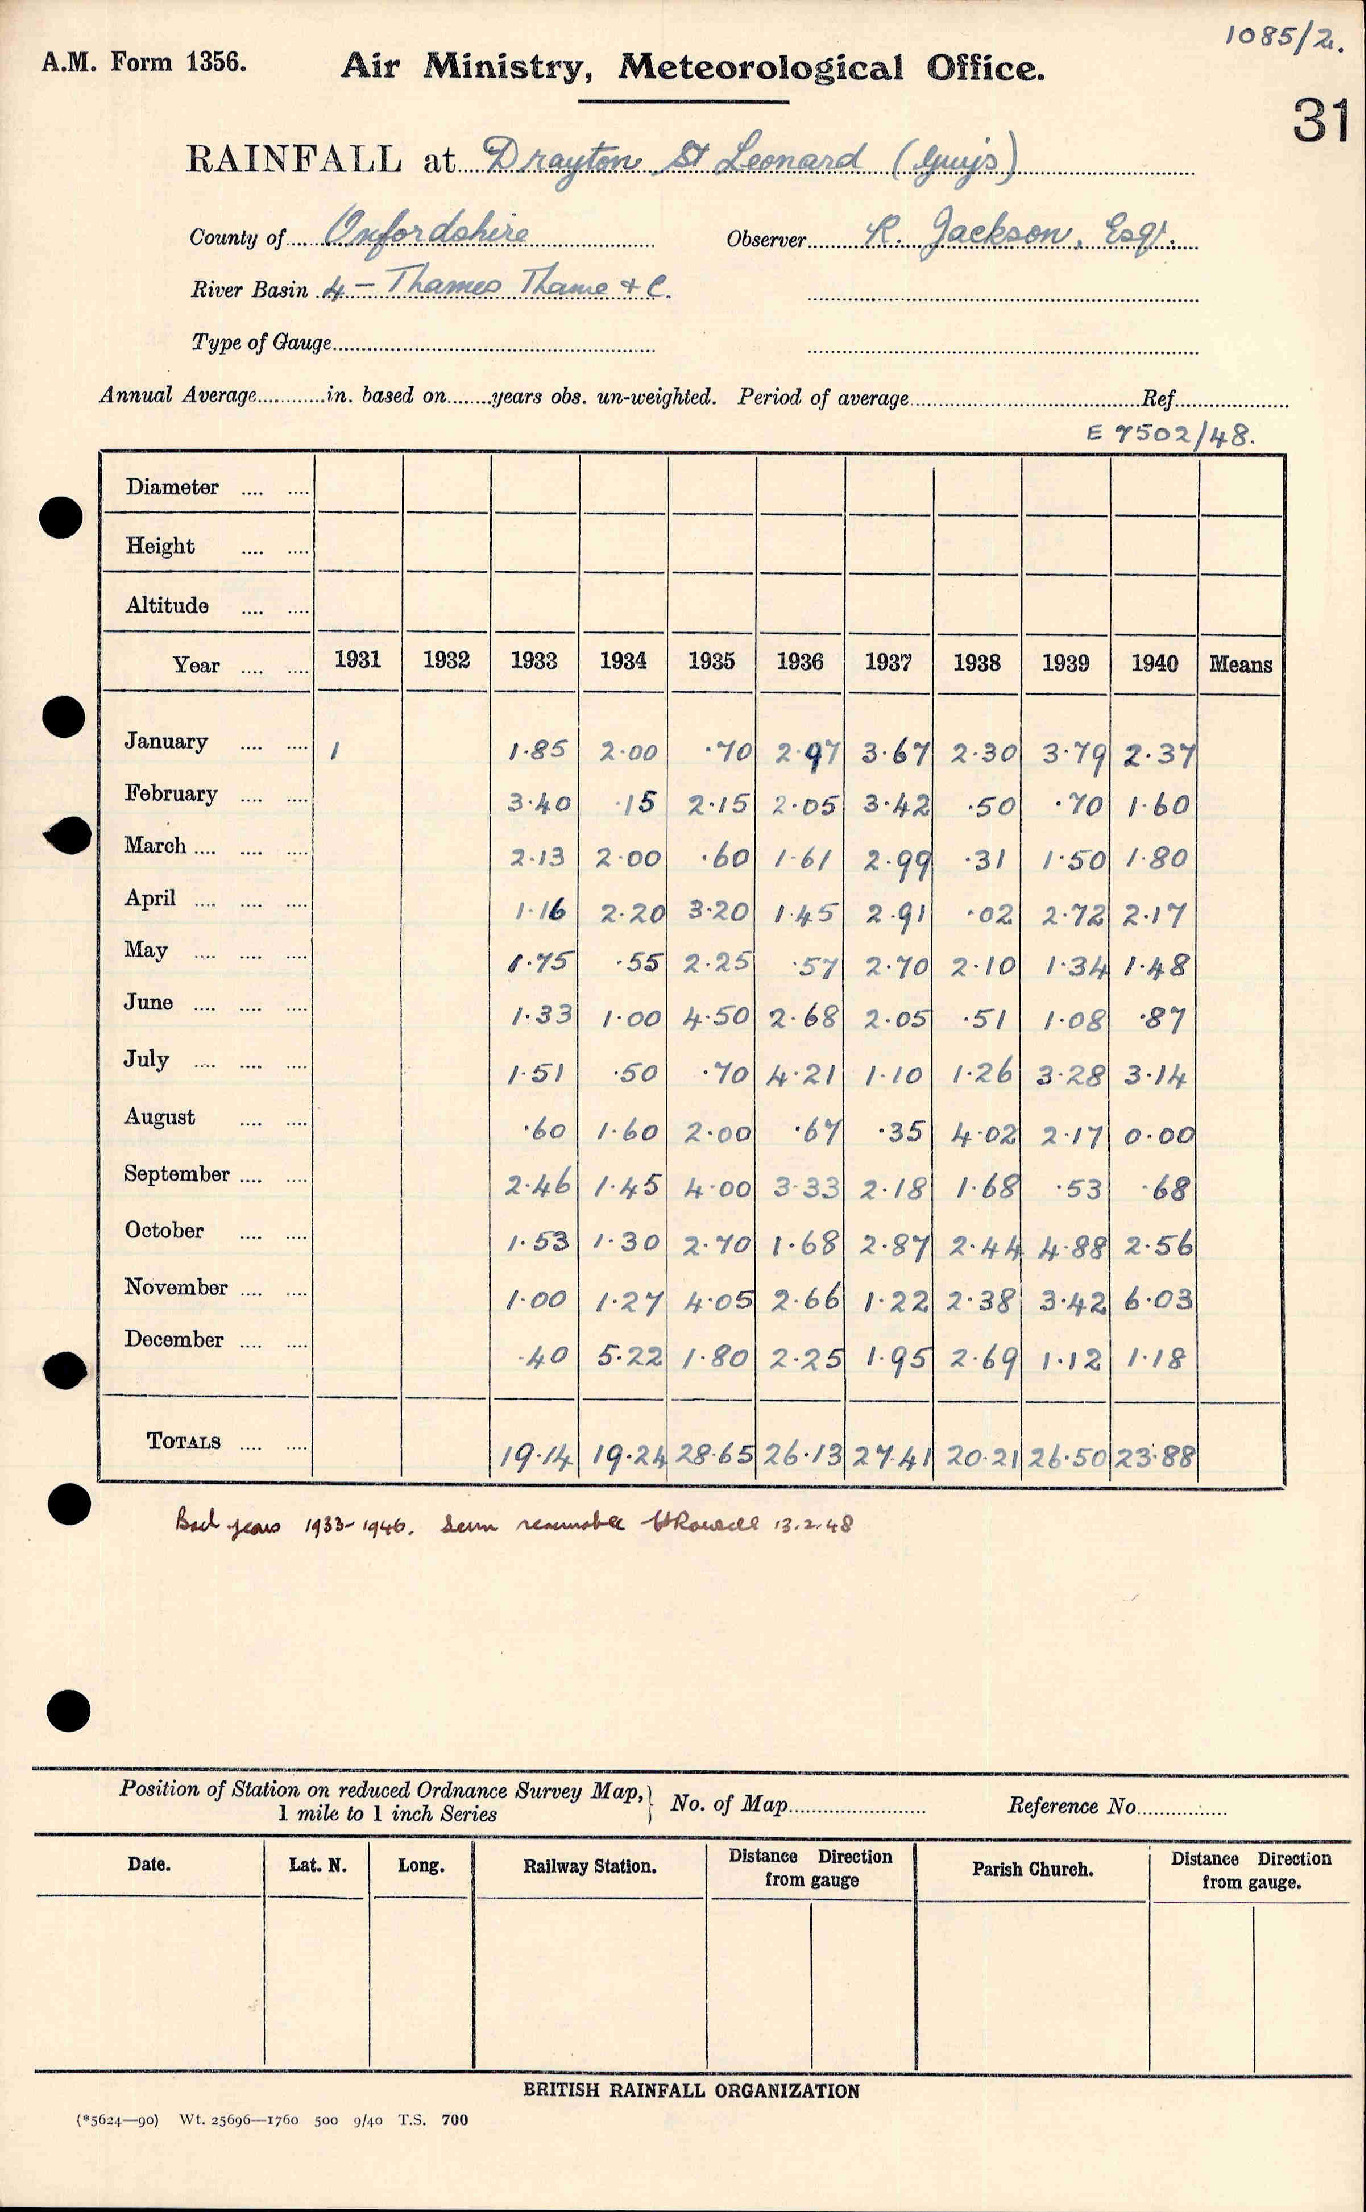 1085/2.
A.M. Form 1356. Air Ministry, Meteorological Office.
31
RAINFALL at Drayton St Leonard (Guys)
County of Oxfordshire Observer R. Jackson, Esqr.
River Basin 4 - Thames Thame & C.
Type of Gauge
Annual Average in. based on years obs. un-weighted. Period of average Ref
E 7502/48.
Diameter .... ....
Height .... ....
Altitude .... ....
Year .... .... 1931 1932 1933 1934 1935 1936 1937 1938 1939 1940 Means
January .... .... 1 1.85 2.00 .70 2.97 3.67 2.30 3.79 2.37
February .... .... 3.40 .15 2.15 2.05 3.42 .50 .70 1.60
March .... .... .... 2.13 2.00 .60 1.61 2.99 .31 1.50 1.80
April .... .... .... 1.16 2.20 3.20 1.45 2.91 .02 2.72 2.17
May .... .... .... 1.75 .55 2.25 .57 2.70 2.10 1.34 1.48
June .... .... .... 1.33 1.00 4.50 2.68 2.05 .51 1.08 .87
July .... .... .... 1.51 .50 .70 4.21 1.10 1.26 3.28 3.14
August .... .... .60 1.60 2.00 .67 .35 4.02 2.17 0.00
September .... .... 2.46 1.45 4.00 3.33 2.18 1.68 .53 .68
October .... .... 1.53 1.30 2.70 1.68 2.87 2.44 4.88 2.56
November .... .... 1.00 1.27 4.05 2.66 1.22 2.38 3.42 6.03
December .... .... .40 5.22 1.80 2.25 1.95 2.69 1.12 1.18
TOTALS .... .... 19.14 19.24 28.65 26.13 27.41 20.21 26.50 23.88
Back years 1933-1946. Seem reasonable 13.2.48
Position of Station on reduced Ordnance Survey Map, } No. of Map Reference No
1 mile to 1 inch Series
Date. Lat. N. Long. Railway Station. Distance Direction from gauge Parish Church. Distance Direction from gauge.
BRITISH RAINFALL ORGANIZATION
(*5624—90) Wt. 25696—1760 500 9/40 T.S. 700